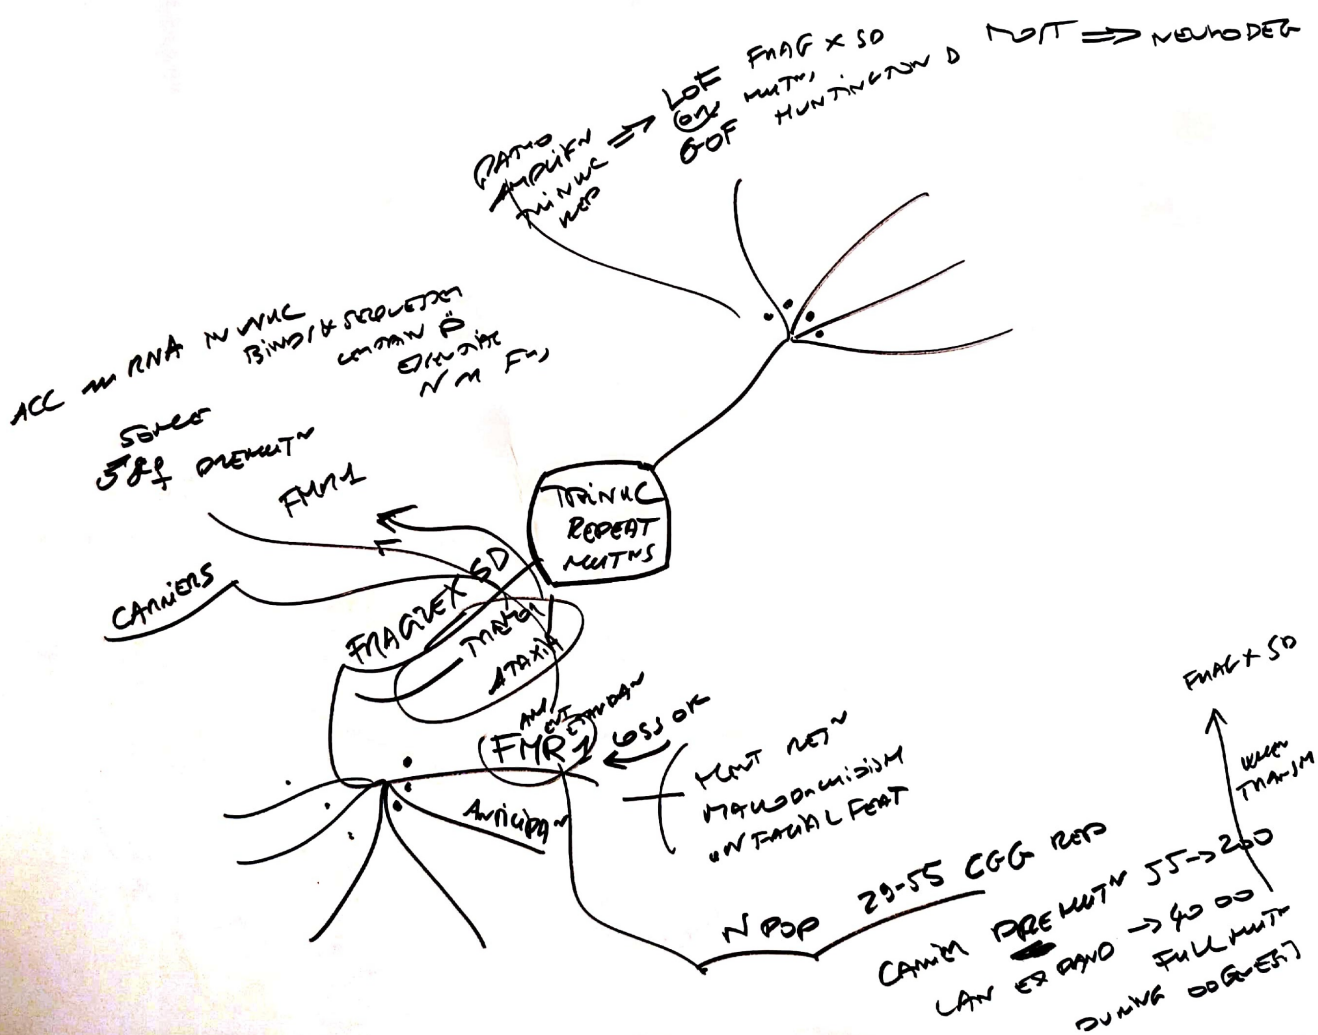 PATHO
AMPLIFN
TRINUC
REP
LOF FRAG X SD
OR MUTN,
GOF HUNTINGTON D
MOST => NEURODEG
ACC m RNA IN NUC
BINDS & SEQUESTER
CERTAIN P
ESSENTIAL
N M FN,
SOME
♂&♀ PREMUTN
FMR1
CARRIERS
TRINUC
REPEAT
MUTNS
FRAGILE X SD
TREMOR
ATAXIA
FMR1
LOSS OF
MENT RETN
MACROORCHIDISM
FACIAL FEAT
ANTICIPAN
N POP 29-55 CGG REP
CARRIER PREMUTN 55->200
CAN EXPAND -> 4000
FULL MUTN
DURING OOGENESIS
WHEN
TRANSM
FRAG X SD